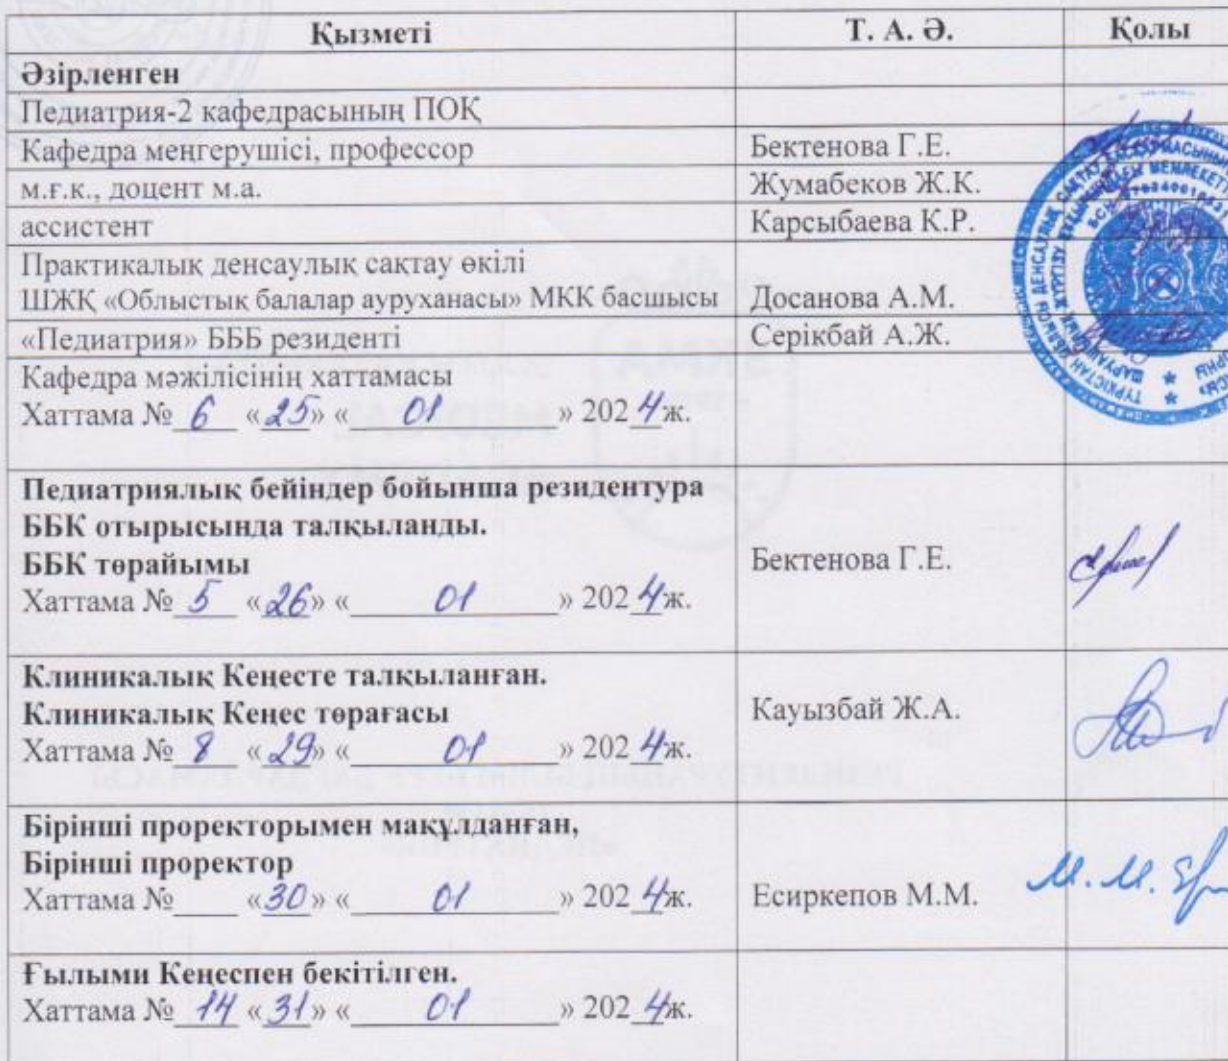 Қызметі Т. А. Ә. Қолы
Әзірленген
Педиатрия-2 кафедрасының ПОҚ
Кафедра меңгерушісі, профессор Бектенова Г.Е.
м.ғ.к., доцент м.а. Жумабеков Ж.К.
ассистент Карсыбаева К.Р.
Практикалық денсаулық сақтау өкілі
ШЖҚ «Облыстық балалар ауруханасы» МКК басшысы Досанова А.М.
«Педиатрия» БББ резиденті Серікбай А.Ж.
Кафедра мәжілісінің хаттамасы
Хаттама № 6 «25» « 01 » 2024ж.
Педиатриялық бейіндер бойынша резидентура
ББК отырысында талқыланды.
ББК төрайымы Бектенова Г.Е.
Хаттама № 5 «26» « 01 » 2024ж.
Клиникалық Кеңесте талқыланған.
Клиникалық Кеңес төрағасы Кауызбай Ж.А.
Хаттама № 8 «29» « 01 » 2024ж.
Бірінші проректорымен мақұлданған,
Бірінші проректор
Хаттама №____ «30» « 01 » 2024ж. Есиркепов М.М.
Ғылыми Кеңеспен бекітілген.
Хаттама № 14 «31» « 01 » 2024ж.